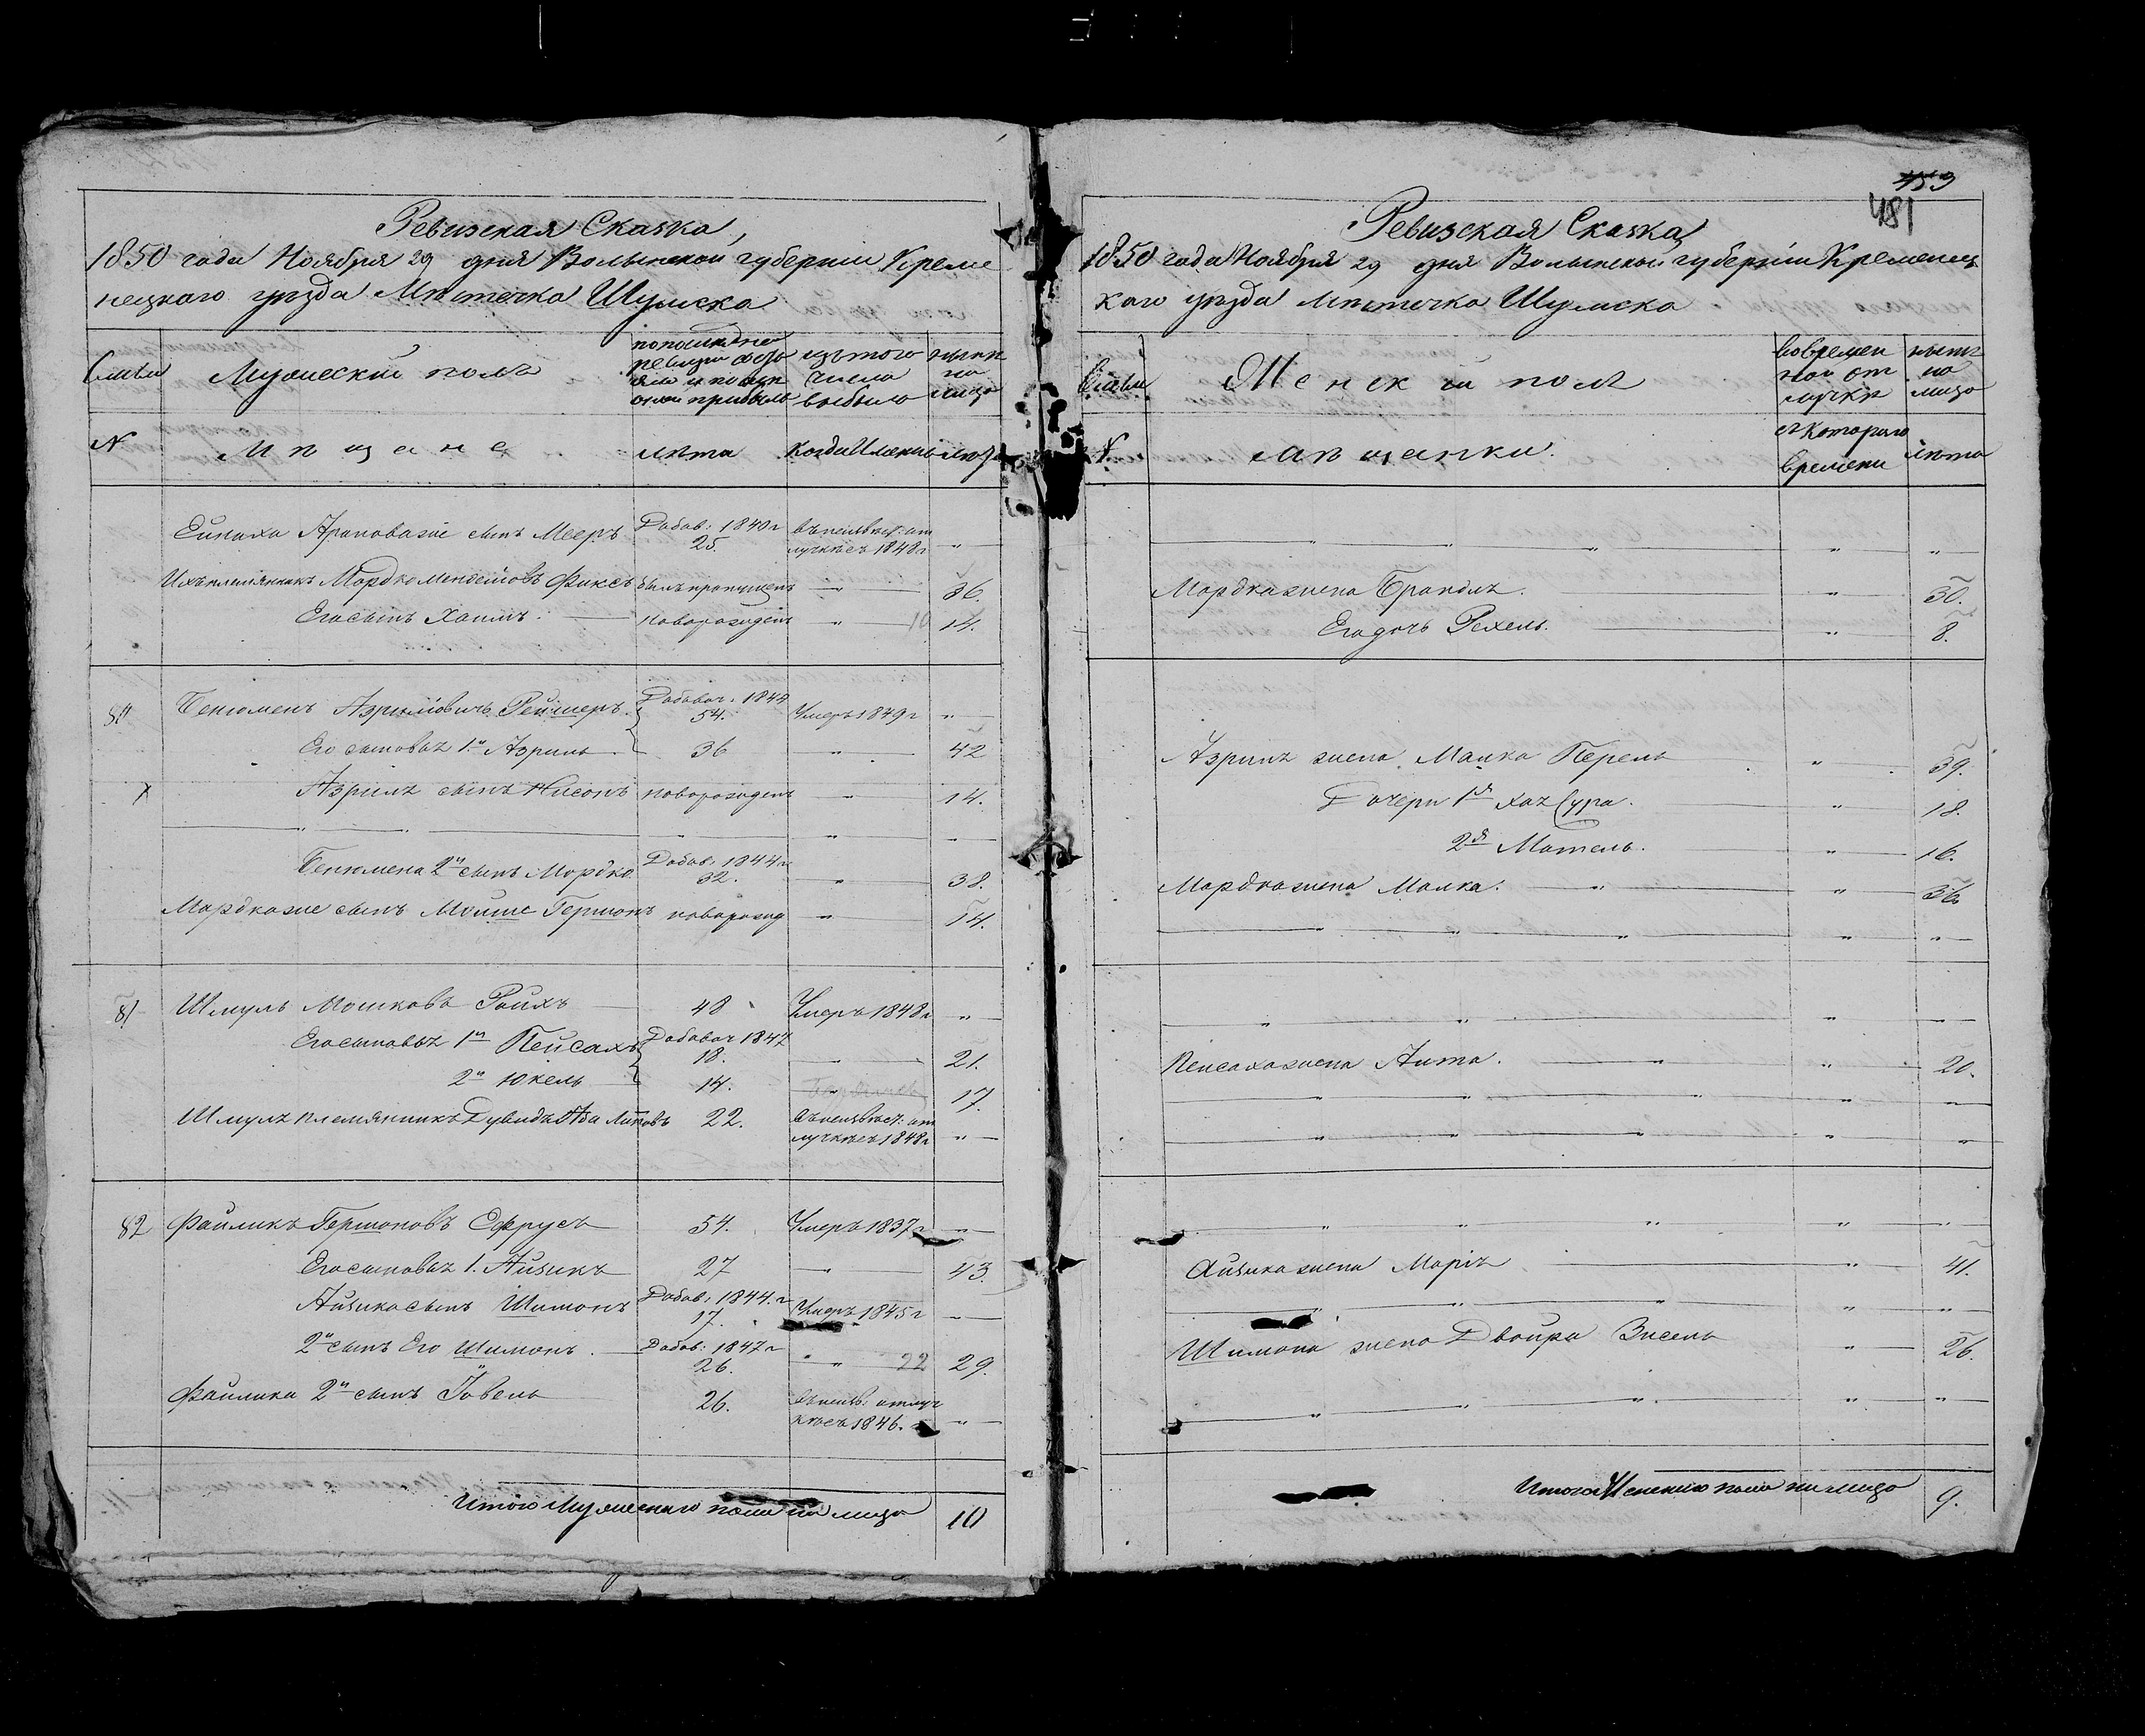 Ревизская Сказка,
1850 года Ноября 29 дня Волынской губернии Креме
нецкаго уѣзда Мѣстечка Шумска
Семьи
Мужескій полъ
ревизіи
прибыло
изъ того
числа
выбыло
нынѣ
на
лицо
N
Мѣщане
лѣта
когда именно
лѣта
сынъ Мееръ
Добав: 1840 г
25.
въ неизвѣст: от
лучкѣ съ 1848 г
"
Ихъ племянникъ Мордко Менделіовъ Фиксъ
былъ пропущенъ
"
36.
Его сынъ Хаимъ.
новорожденъ
"
10
14.
Бенюменъ Азриліовичъ Рейшеръ.
54.
Умеръ 1849 г
"
Его сыновья 1й Азриль
36
"
42
Х
Азриля сынъ Нисонъ
новорожденъ
"
14.
" " " " "
Бенюмена 2й сынъ Мордко
Добав: 1844 г
32.
"
38.
Мордка же сынъ Мойше Гершонъ
новорожд
"
14.
81
Шмуль Мошковъ Райхъ
48
Умеръ 1848 г
"
Его сыновья 1й Пейсахъ
Добавоч 1847
18.
"
21.
2й Юкель
14.
17.
Шмуля племянникъ Дувидъ
22.
въ неизвѣст: от
лучкѣ съ 1848 г
"
82
Файликъ Гершоновъ Ефрусъ
54.
Умеръ 1837 г
"
Его сыновья 1. Айзикъ
27
"
43.
Айзика сынъ Шимонъ
Добав: 1844. г
17.
Умеръ 1845 г
"
2й сынъ Его Шимонъ.
Добав: 1847 г
26.
"
22
29.
Файлика 2й сынъ Іовель
26.
въ неизв: отлуч
кѣ съ 1846.
"
Итого Мужескаго пола на лицо
10
453
481
Ревизская Сказка
1850 года Ноября 29 дня Волынской губерніи Кременец
каго уѣзда Мѣстечка Шумска
Семьи
Женскій полъ
во времен
ной от
лучкѣ
нынѣ
на
лицо
N
Мѣщанки.
съ котораго
времени
лѣта
" " " " "
Мордка жена Брандля.
"
30.
Его дочь Рехель.
"
8.
Азриля жена Малка Перель
"
39.
Дочери 1я Хая Сура.
"
18.
2я Мотель.
"
16.
Мордка жена Малка.
" "
36
" " " " "
" " "
Пейсаха жена Анта.
" "
20.
" " " " "
" " " " "
" " " " "
Айзика жена Марія
"
41.
" " " " "
Шимона жена Двойра Зисель
"
26.
" " " " "
Итого Женскаго пола на лицо
9.